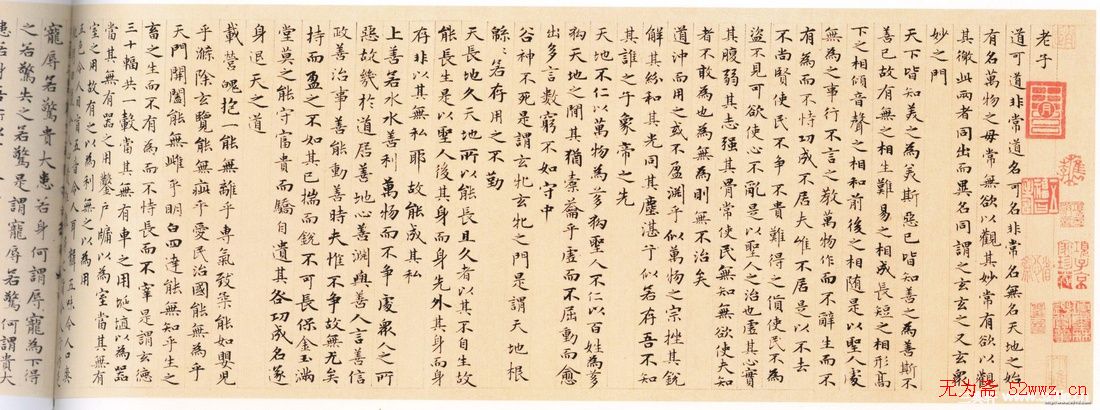 老子
道可道非常道名可名非常名無名天地之始
有名萬物之母常無欲以觀其妙常有欲以觀
其徼此兩者同出而異名同謂之玄玄之又玄衆
妙之門
天下皆知美之為美斯惡已皆知善之為善斯不
善已故有無之相生難易之相成長短之相形高
下之相傾音聲之相和前後之相隨是以聖人處
無為之事行不言之教萬物作而不辭生而不
有為而不恃功成不居夫惟不居是以不去
不尚賢使民不爭不貴難得之貨使民不為
盜不見可欲使心不亂是以聖人之治也虛其心實
其腹弱其志强其骨常使民無知無欲使夫知
者不敢為也為無為則無不治矣
道沖而用之或不盈淵乎似萬物之宗挫其銳
解其紛和其光同其塵湛乎似若存吾不知
其誰之子象帝之先
天地不仁以萬物為芻狗聖人不仁以百姓為芻
狗天地之間其猶橐籥乎虛而不屈動而愈
出多言數窮不如守中
谷神不死是謂玄牝玄牝之門是謂天地根
綿綿若存用之不勤
天長地久天地所以能長且久者以其不自生故
能長生是以聖人後其身而身先外其身而身
存非以其無私耶故能成其私
上善若水水善利萬物而不爭處衆人之所
惡故幾於道居善地心善淵與善人言善信
政善治事善能動善時夫惟不爭故無尤矣
持而盈之不如其已揣而銳不可長保金玉滿
堂莫之能守富貴而驕自遺其咎功成名遂
身退天之道
載營魄抱一能無離乎專氣致柔能如嬰兒
乎滌除玄覽能無疵乎愛民治國能無為乎
天門開闔能無雌乎明白四達能無知乎生之
畜之生而不有為而不恃長而不宰是謂玄德
三十輻共一轂當其無有車之用埏埴以為器
當其無有器之用鑿戶牖以為室當其無有
室之用故有之以為利無之以為用
五色令人目盲五音令人耳聾五味令人口爽
寵辱若驚貴大患若身何謂辱寵為下得
之若驚失之若驚是謂寵辱若驚何謂貴大
患若身吾所以
无为斋 52wwz.cn